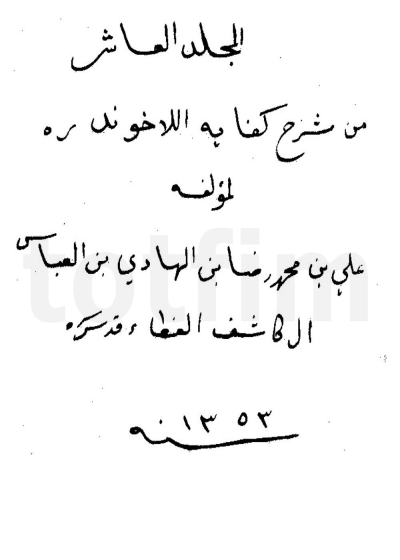 المجلد العاشر
من شرح كفايه اللاخوند ره
لمؤلفه
علي بن محمد رضا بن الهادي بن العباس
ال كاشف الغطاء قد سره
١٣٥٣
سنه
totfim